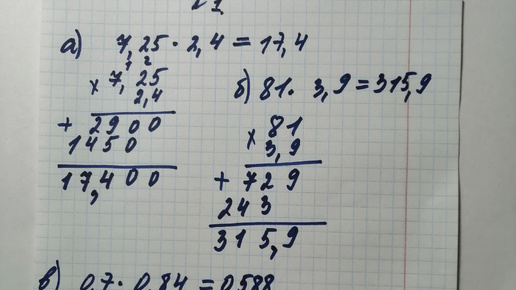 а) 7,25 · 2,4 = 17,4
1 2
× 7,25
2,4
+ 2900
1450
17,400
б) 81 · 3,9 = 315,9
× 81
3,9
+ 729
243
315,9
в) 0,7 · 0,84 = 0,588